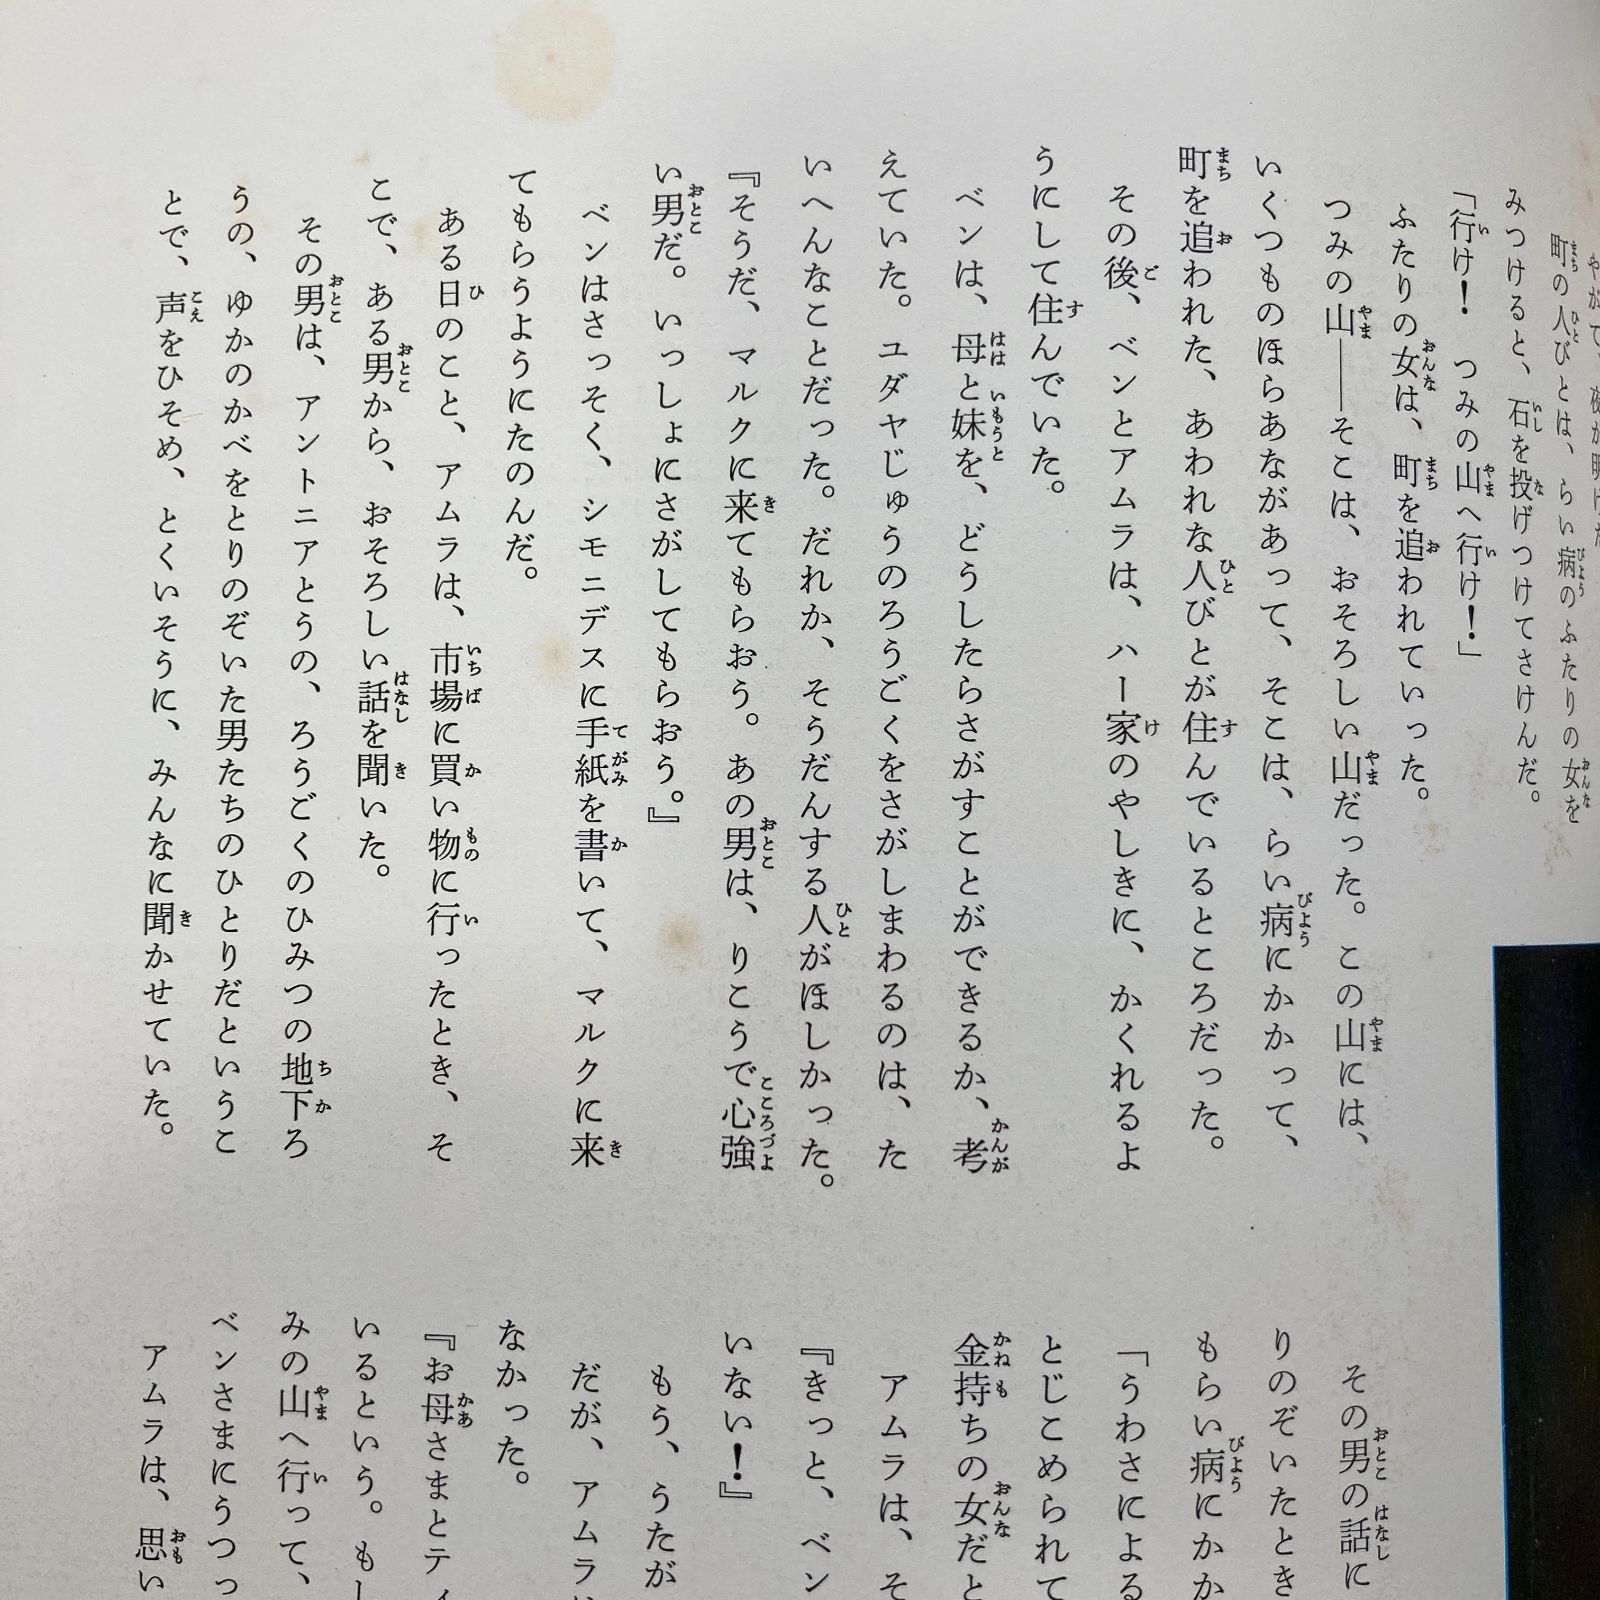 やがて、夜が明けた
町の人びとは、らい病のふたりの女を
みつけると、石を投げつけてさけんだ。
「行け！　つみの山へ行け！」
ふたりの女は、町を追われていった。
つみの山――そこは、おそろしい山だった。この山には、
いくつものほらあながあって、そこは、らい病にかかって、
町を追われた、あわれな人びとが住んでいるところだった。
その後、ベンとアムラは、ハー家のやしきに、かくれるよ
うにして住んでいた。
ベンは、母と妹を、どうしたらさがすことができるか、考
えていた。ユダヤじゅうのろうごくをさがしまわるのは、た
いへんなことだった。だれか、そうだんする人がほしかった。
『そうだ、マルクに来てもらおう。あの男は、りこうで心強
い男だ。いっしょにさがしてもらおう。』
ベンはさっそく、シモニデスに手紙を書いて、マルクに来
てもらうようにたのんだ。
ある日のこと、アムラは、市場に買い物に行ったとき、そ
こで、ある男から、おそろしい話を聞いた。
その男は、アントニアとうの、ろうごくのひみつの地下ろ
うの、ゆかのかべをとりのぞいた男たちのひとりだというこ
とで、声をひそめ、とくいそうに、みんなに聞かせていた。
その男の話に
りのぞいたとき
もらい病にかか
「うわさによる
とじこめられて
金持ちの女だと
アムラは、そ
『きっと、ベン
いない！』
もう、うたが
だが、アムラ
なかった。
『お母さまとティ
いるという。もし
みの山へ行って、
ベンさまにうつっ
アムラは、思い